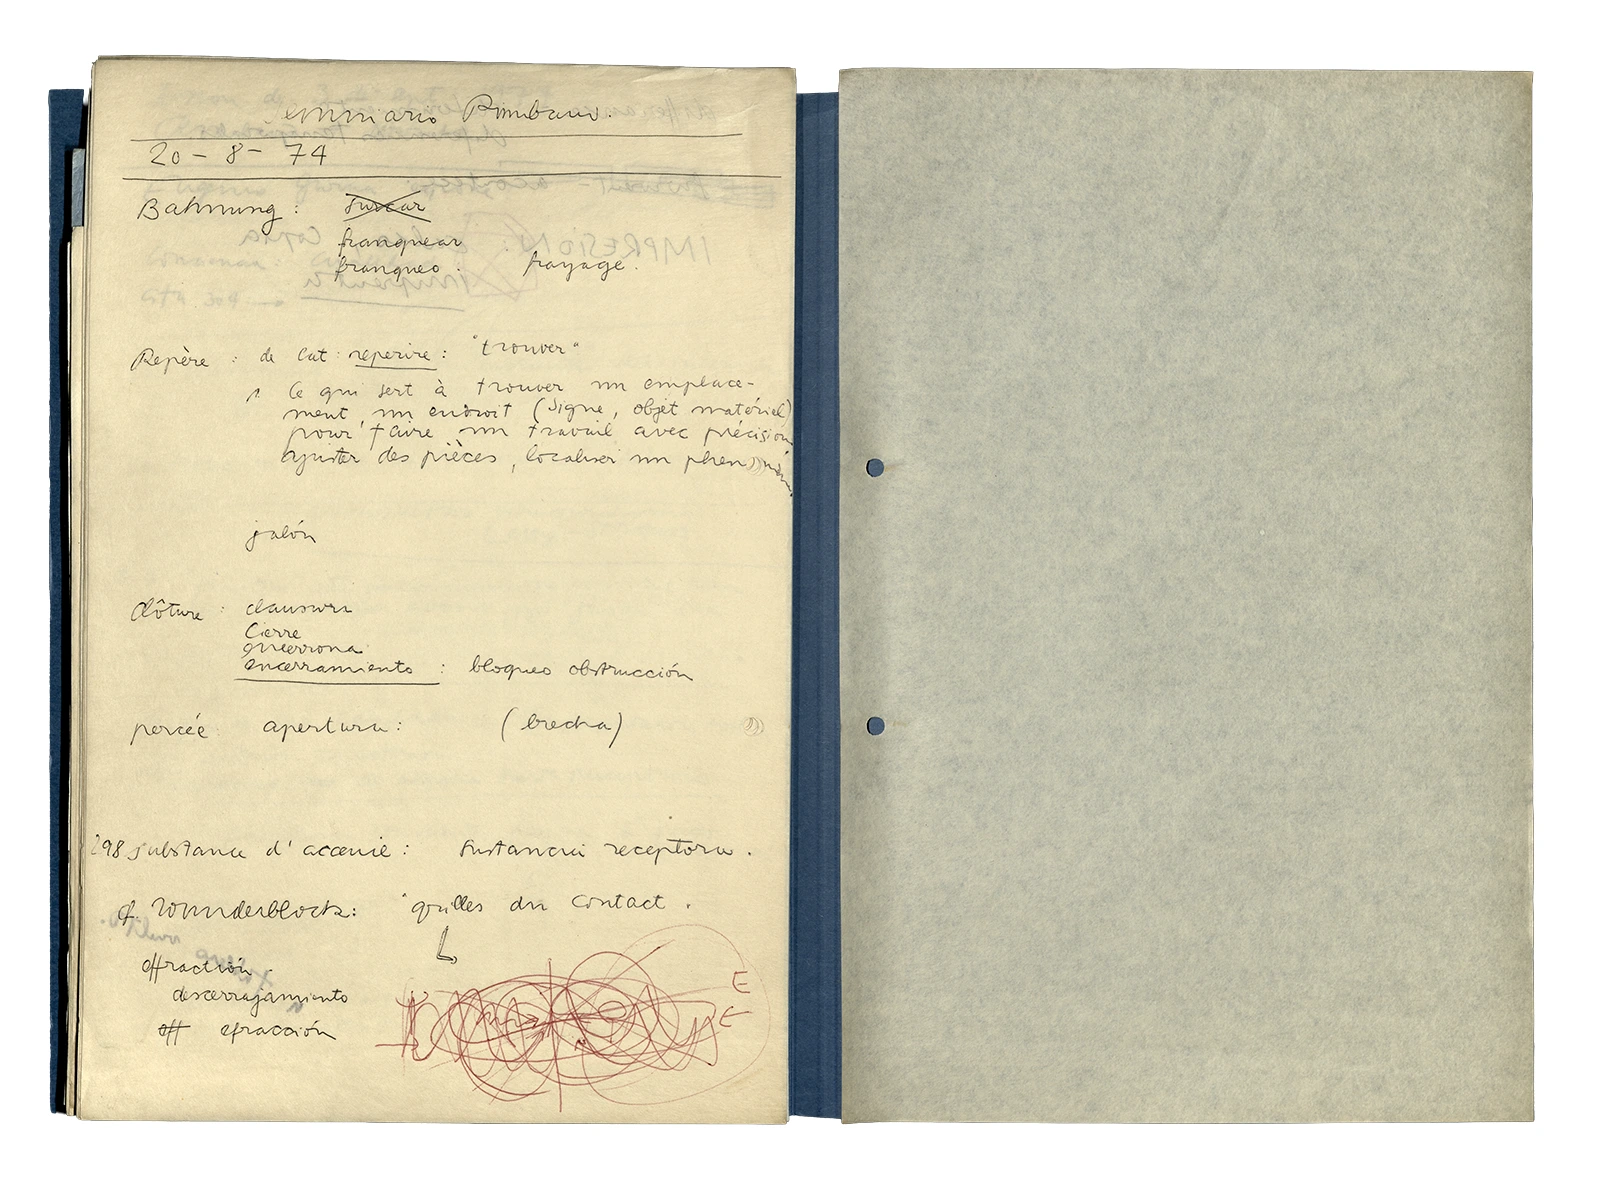 20 - 8 - 74
Bahnung : surcar
franquear
franqueo . frayage .
Repère : de lat : reperire : "trouver"
1. Ce qui sert à trouver un emplace-
ment, un endroit (signe, objet matériel)
pour faire un travail avec précision
ajuster des pièces, localiser un phénomène
jalón
Clôture : clausura
Cierre
encerramiento : bloqueo obstrucción
percée apertura : (brecha)
298 substance d'accueil : sustancia receptora .
cf. Wunderblock : grilles du contact .
effraction .
descerrajamiento
eff efracción
E
E